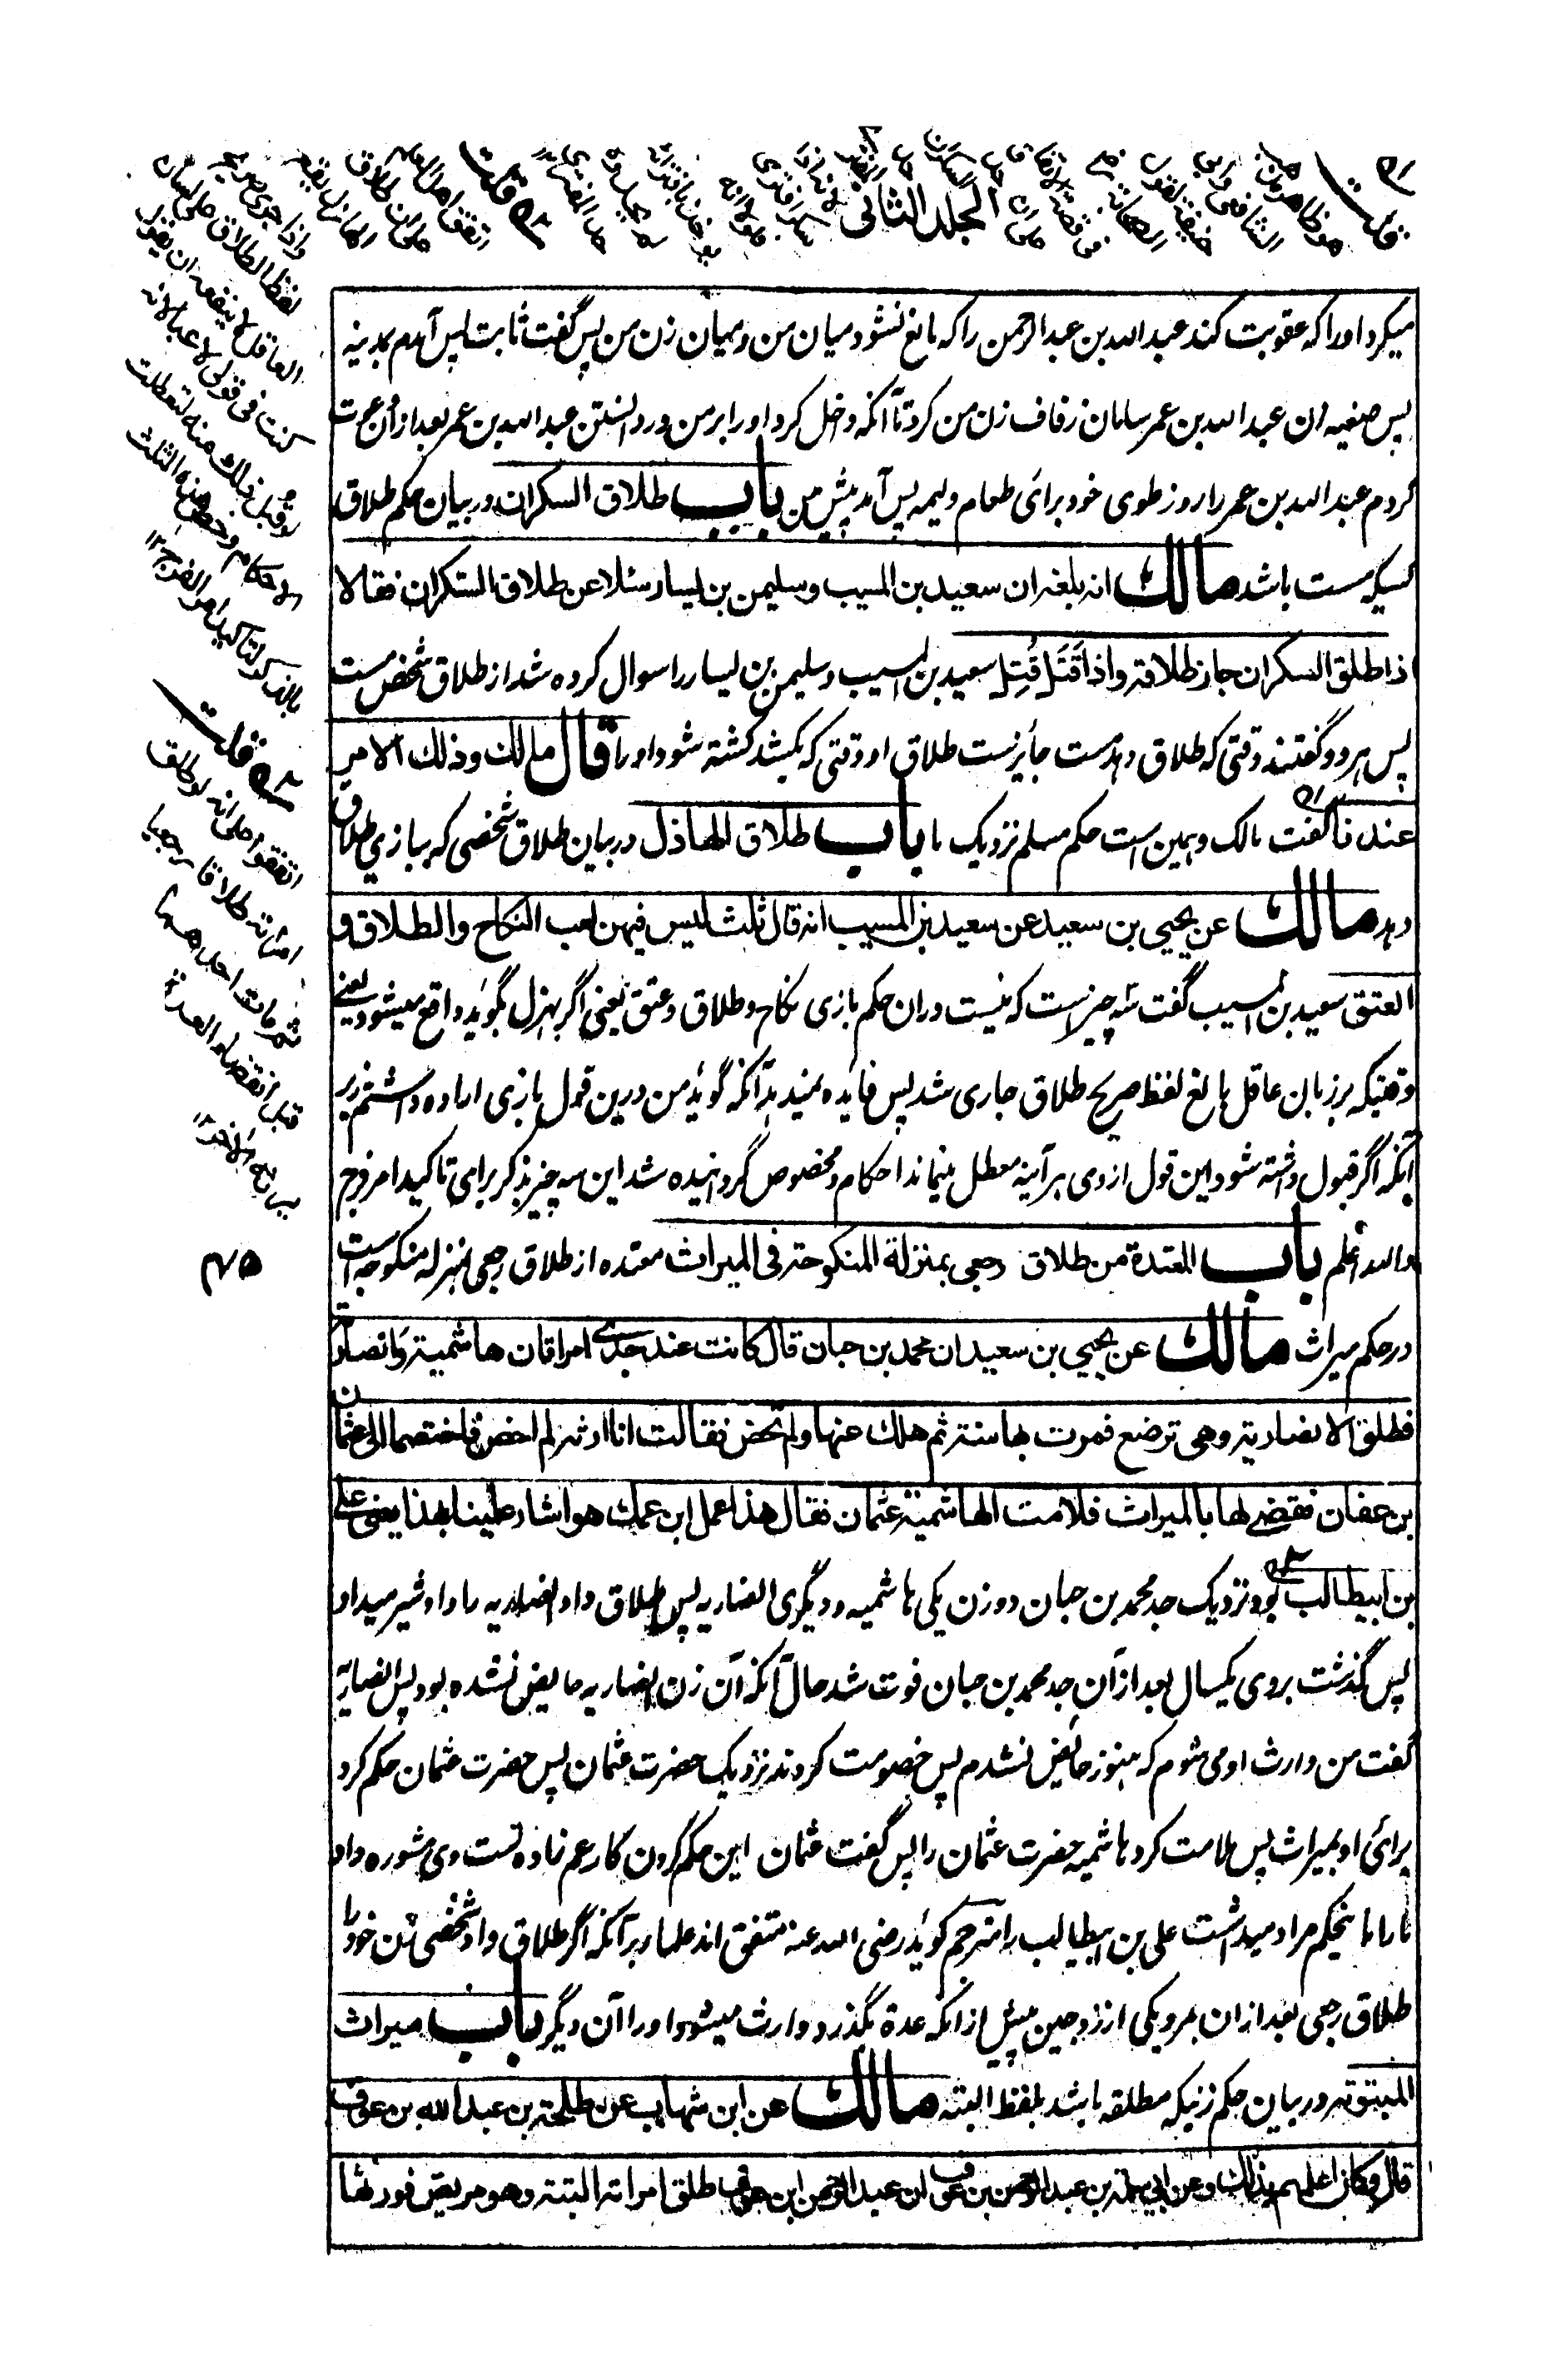 المجلد الثانی
میکرد اورا که عقوبت کند عبد الله بن عبد الرحمن را که مانع نشود میان من و میان زن من پس گفت ثابت پس آمدم بمدینه
پس صفیه زن عبد الله بن عمر سامان زفاف زن من کرد تا آنکه داخل کرد او را بر من در دانستن عبد الله بن عمر بعد ازان دعوت
کردم عبد الله بن عمر را روز طوی خود برائی طعام ولیمه پس آمد پیش من باب طلاق السکران در بیان حکم طلاق
کسیکه مست باشد مالك انه بلغه ان سعید بن المسیب وسلیمن بن یسار سئلا عن طلاق السکران فقالا
اذا طلق السکران جاز طلاقه واذا قَتَل قُتِل سعید بن المسیب و سلیمن بن یسار را سوال کرده شد از طلاق شخص مست
پس هر دو گفتند وقتی که طلاق دهد مست جائزست طلاق او و وقتی که بکشد کشته شود او را قال مالك وذلك الامر
عندنا گفت مالک و همین است حکم مسلم نزدیک ما باب طلاق الهاذل در بیان طلاق شخصی که ببازی طلاق
دهد مالك عن یحیی بن سعید عن سعید بن المسیب انه قال ثلث لیس فیهن لعب النکاح والطلاق و
العتق سعید بن المسیب گفت سه چیزست که نیست دران حکم بازی نکاح و طلاق و عتق یعنی اگر بهزل بگوید واقع میشود یعنے
وقتیکه بر زبان عاقل بالغ لفظ صریح طلاق جاری شد پس فائده نمیدهد آنکه گوید من درین قول بازی اراده داشتم زیر
آنکه اگر قبول داشته شود این قول ازوی هر آینه معطل میماند احکام و مخصوص گردانیده شد این سه چیز بذکر برای تاکید امر فرج
والله اعلم باب المعتدة من طلاق رجعی بمنزلة المنکوحة فی المیراث معتده از طلاق رجعی بمنزله منکوحه است
در حکم میراث مالك عن یحیی بن سعید ان محمد بن حبان قال کانت عند جدی امراتان هاشمیة وانصاریة
فطلق الانصاریة وهی ترضع فمرت بها سنة ثم هلك عنها ولم تحض فقالت انا ارثه لم احض فاختصما الی عثمان
بن عفان فقضے لها بالمیراث فلامت الهاشمیة عثمان فقال هذا عمل ابن عمك هو اشار علینا بهذا یعنی علی
بن ابیطالب بود نزدیک جد محمد بن حبان دو زن یکی هاشمیه و دیگری انصاریه پس طلاق داد انصاریه را و او شیر میداد
پس گذشت بروی یکسال بعد ازآن جد محمد بن حبان فوت شد حال آنکه آن زن انصاریه حایض نشده بود پس انصاریه
گفت من وارث او می شوم که هنوز حائض نشدم پس خصومت کردند نزدیک حضرت عثمان پس حضرت عثمان حکم کرد
برائی او بمیراث پس ملامت کرد هاشمیه حضرت عثمان را پس گفت عثمان این حکم کردن کار عم زاده تست وی مشوره داد
مارا باینحکم مراد میداشت علی بن ابیطالب را مترجم گوید رضی الله عنه متفق اند علما برآنکه اگر طلاق داد شخصی زن خود را
طلاق رجعی بعد ازان بمرد یکی از زوجین پیش ازانکه عدة بگذرد وارث میشود او را آن دیگر باب میراث
المبتوتة در بیان حکم زنیکه مطلقه باشد بلفظ البته مالك عن ابن شهاب عن طلحة بن عبد الله بن عوف
قال وکان اعلمهم بذلك وعن ابی سلمة بن عبد الرحمن بن عوف ان عبد الرحمن ابن عوف طلق امراته البتة وهو مریض فورثها
۵۲ قلت
واذا جری صریح
لفظ الطلاق علی لسان
العاقل لا ینفعه ان یقول
کنت فی قولی لاعبا لانه
لو قبل ذلك منه لتعطلت
الاحکام وخص هذه الثلث
بالذکر لتاکید امر الفرج ۱۲
قلت
اتفقوا علی انه لو طلق
امراته طلاقا رجعیا
ثم مات احدهما
قبل انقضاء العدة
یرثه الآخر ۱۲